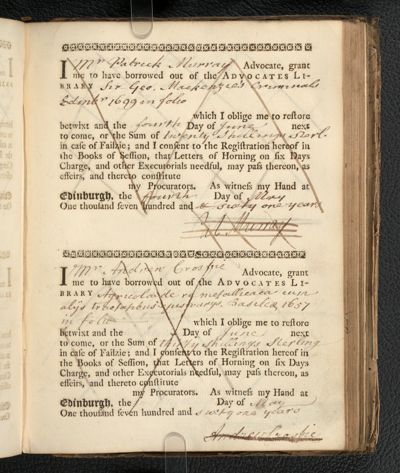 I Mr Patrick Murray Advocate, grant
me to have borrowed out of the ADVOCATES LI-
BRARY Sir Geo. Mackenzie's Criminals
Edinbr 1699 in folio
which I oblige me to restore
betwixt and the fourth Day of June next
to come, or the Sum of twenty Shillings Sterl.
in case of Failzie; and I consent to the Registration hereof in
the Books of Session, that Letters of Horning on six Days
Charge, and other Executorials needful, may pass thereon, as
effeirs, and thereto constitute
my Procurators. As witness my Hand at
Edinburgh, the fourth Day of May
One thousand seven hundred and sixty one years
Murray
I Mr Andrew Crosbie Advocate, grant
me to have borrowed out of the ADVOCATES LI-
BRARY Agricola de re metallica cum
alijs Basileæ 1657
in folio which I oblige me to restore
betwixt and the Day of June next
to come, or the Sum of thirty Shillings Sterling
in case of Failzie; and I consent to the Registration hereof in
the Books of Session, that Letters of Horning on six Days
Charge, and other Executorials needful, may pass thereon, as
effeirs, and thereto constitute
my Procurators. As witness my Hand at
Edinburgh, the Day of May
One thousand seven hundred and sixty one years
Andrew Crosbie